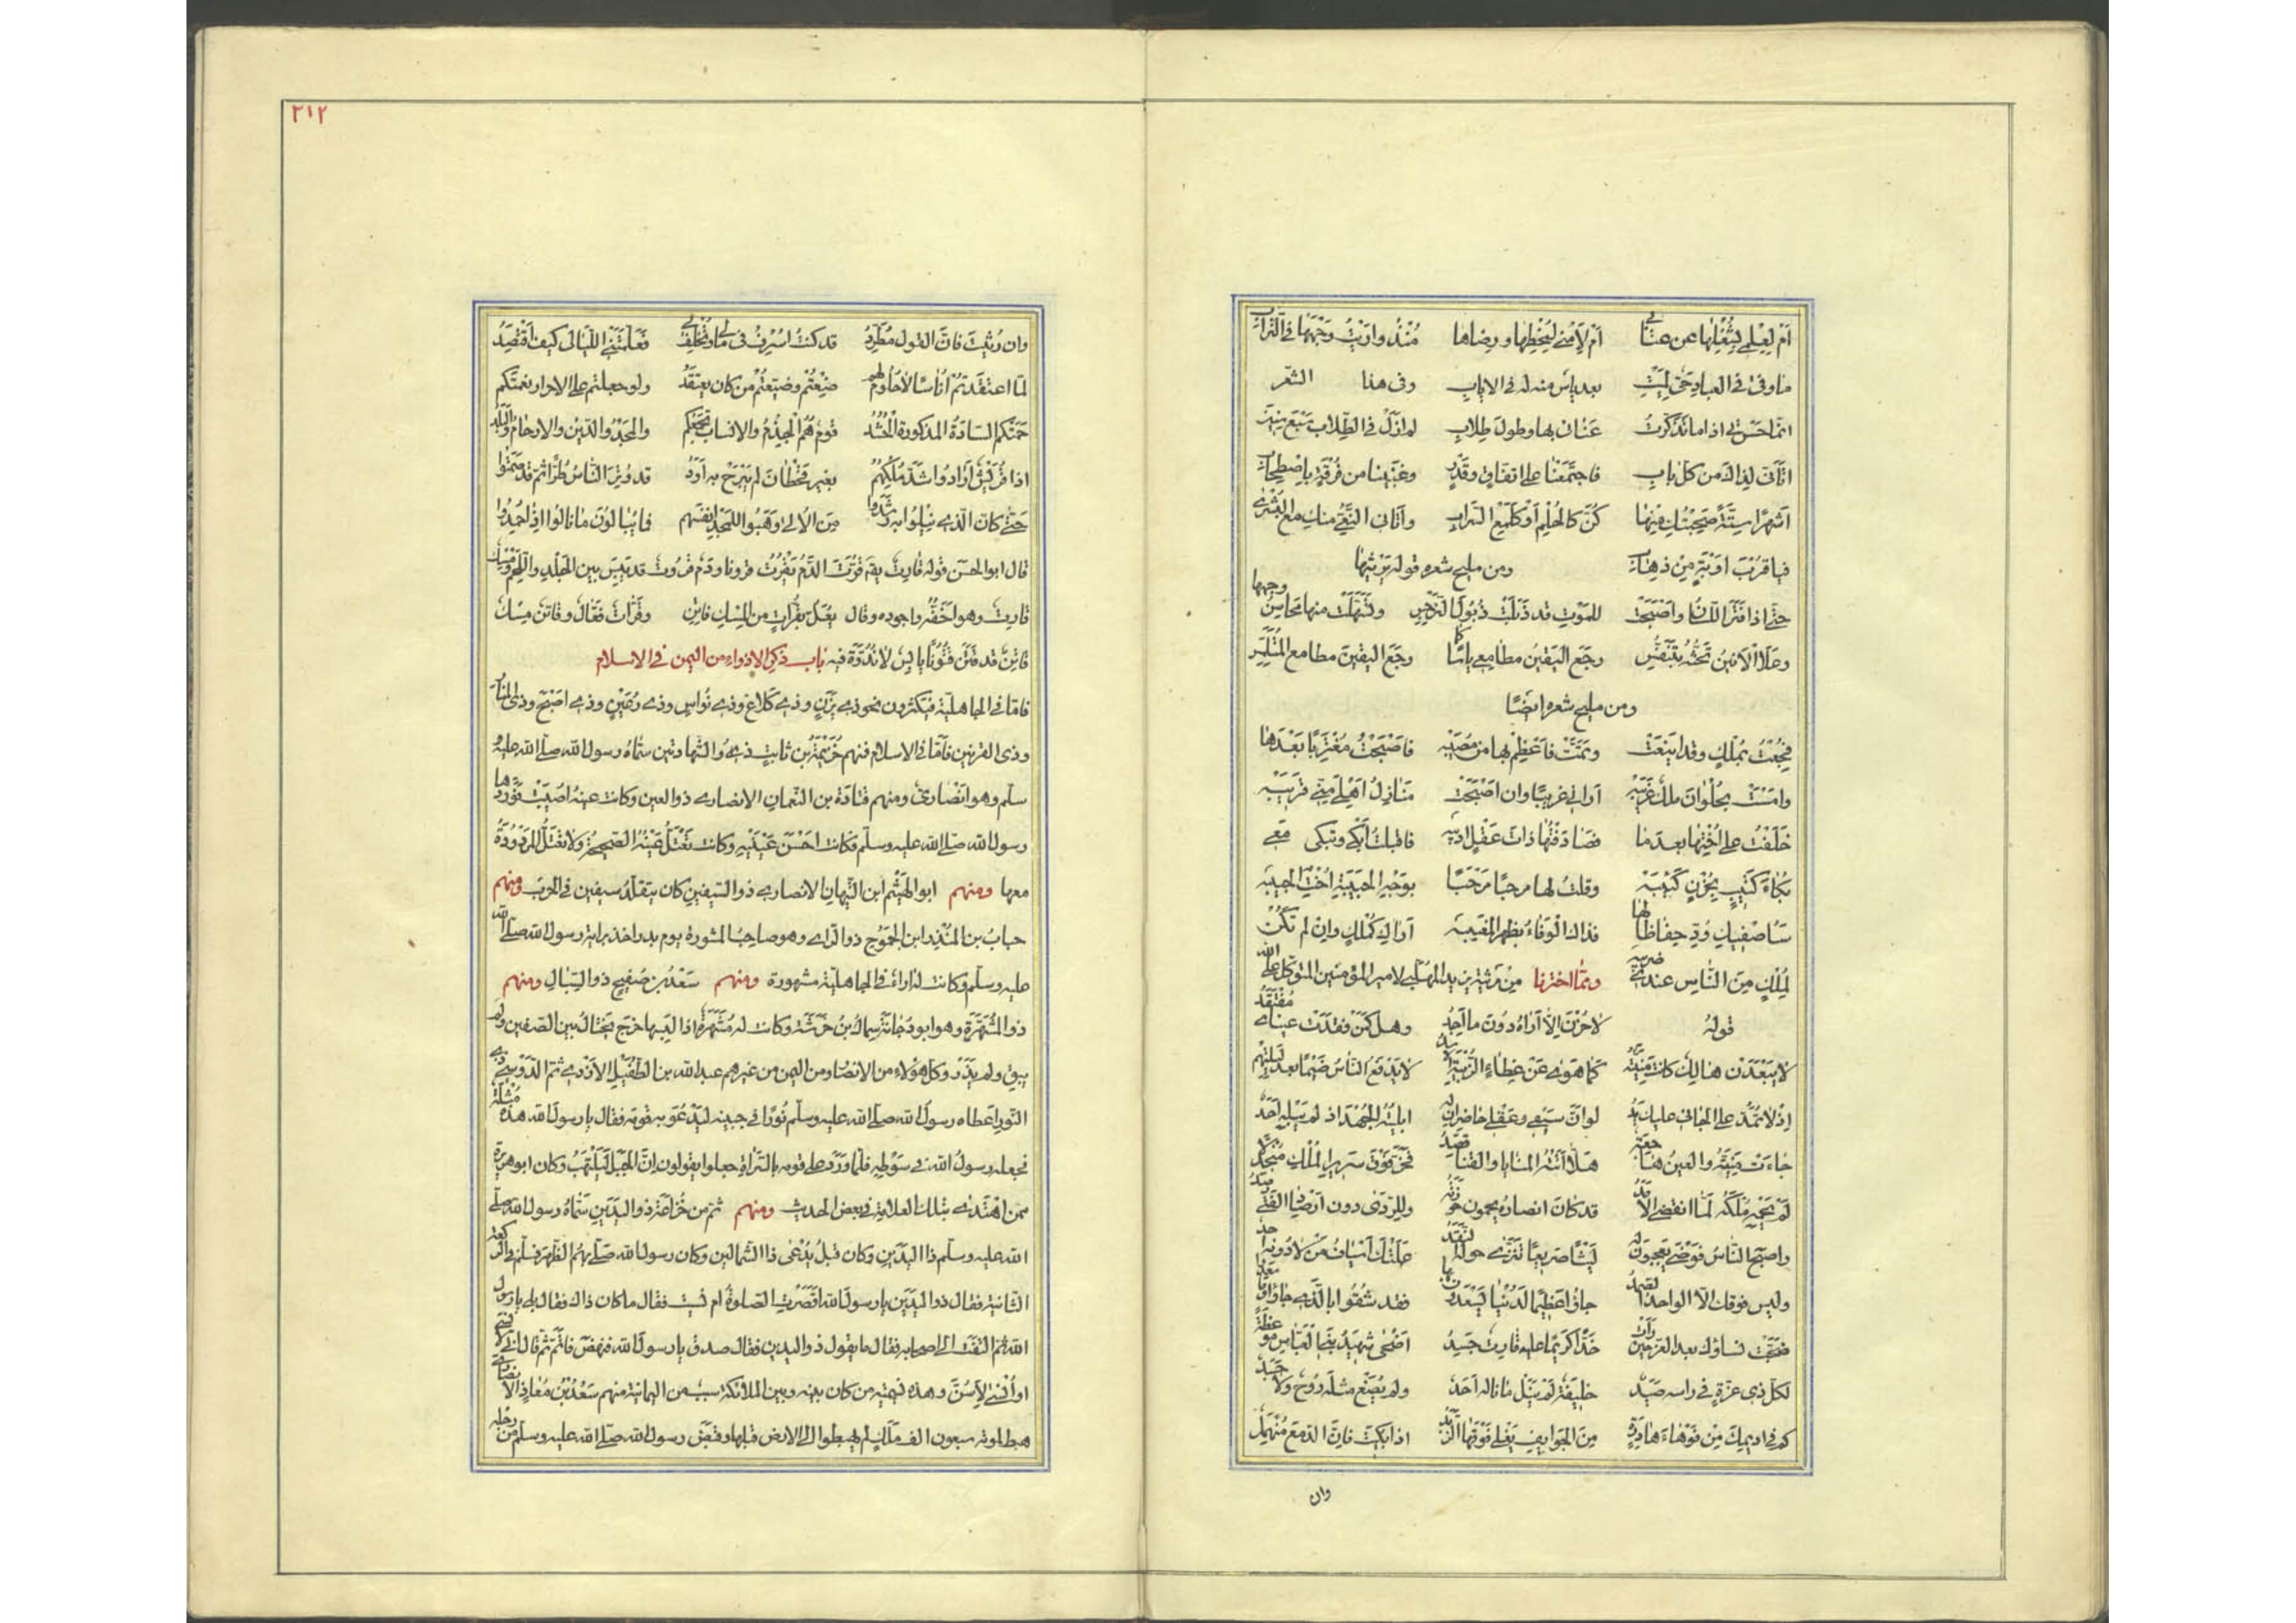 أم لعلمي بشغلها عن عتابي أم لأمني لسخطها ورضاها منذ واريت وجهها في التراب
ما وفى في العباد حي لميت بعد يأس منه له في الإياب وفي هذا الشعر
إنما حسرتي إذا ما تذكرت عنائي بها وطول طلابي لم أزل في الطلاب سبع سنين
أتأتى لذاك من كل باب فاجتمعنا على اتفاق وقدر وغنينا من فرقة باصطحاب
أشهرا ستة صحبتك فيها كن كالحلم أو كلمع السراب وأتاني النعي منك مع البشرى
فيا قرب أوبة من ذهاب ومن مليح شعره قوله يرثيها
حتى إذا فتر اللسان وأصبحت للموت قد ذبلت ذبول النرجس وتسهلت منها محاسن وجهها
وعلا الأنين تحثه بتنفس رجع اليقين مطامعي يأسا كما رجع اليقين مطامع المتلمس
ومن مليح شعره أيضا
فجعت بملك وقد أينعت وتمت فأعظم بها من مصيبه فأصبحت مغتربا بعدها
وأمست بحلوان ملك غريبه أراني غريبا وإن أصبحت منازل أهلي مني قريبه
خلفت على أختها بعدما فصادفتها ذات عقل أديبه فأقبلت أبكي وتبكي معي
بكاء كئيب بحزن كئيبه وقلت لها مرحبا مرحبا بوجه الحبيبة أخت الحبيبه
سأصفيك ودي حفاظا لها فذاك الوفاء بظهر المغيبه أراك كملك وإن لم تكن
لملك من الناس عندي ضريبه ومما اخترنا من مرثية يزيد المهلبي لأمير المؤمنين المتوكل على الله
قوله لا حزن إلا أراه دون ما أجد وهل كمن فقدت عيناي مفتقد
لا يبعدن هالك كانت منيته كما هوى عن غطاء الزبية الأسد لا يدفع الناس ضيما بعد ليلتهم
إذ لا تمد على الجاني عليك يد لو أن سيفي وعقلي حاضران له أبليته الجهد إذ لم يبله أحد
جاءت منيته والعين هاجعة هلا أتته المنايا والقنا قصد فخر فوق سرير الملك منجدلا
لم يحمه ملكه لما انقضى الأمد قد كان أنصاره يحمون حوزته وللردى دون أرصاد الفتى رصد
وأصبح الناس فوضى يعجبون له ليثا صريعا تنزى حوله النقد علتك أسياف من لا دونه أحد
وليس فوقك إلا الواحد الصمد جاؤا عظيما لدنيا يسعدون بها فقد شقوا بالذي جاؤا وما سعدوا
ضجت نساؤك بعد العز حين رأت خدا كريما عليه قارت جسد أضحى شهيد بني العباس موعظة
لكل ذي عزة في رأسه صيد خليفة لم ينل ما ناله أحد ولم يصغ مثله روح ولا جسد
كم في أديمك من فوهاء هادرة من الجوائف يغلي فوقها الزبد إذا بكيت فإن الدمع منهمل
وان
٢١٢
وان رثيت فان القول مطرد قد كنت أسرف في مالي وتخلف لي فعلمتني الليالي كيف أقتصد
لما اعتقدتم أناسا لا حلوم لهم ضعتم وضيعتم من كان يعتقد ولو جعلتم على الأحرار نعمتكم
حمتكم السادة المذكورة الحشد قوم هم الجذم والأنساب تجمعكم والمجد والدين والأرحام والبلد
إذا قريش أرادوا شد ملكهم بغير قحطان لم يبرح به أود قد وتر الناس طرا ثم قد صمتوا
حتى كان الذي نيلوا به رشد من الألى وهبوا للمجد أنفسهم فما يبالون ما نالوا إذا حمدوا
قال أبو الحسن قوله قارت يقال قرت الدم يقرت قروتا ودم قارت قد يبس بين الجلد واللحم ومسك
قارت وهو أخفه وأجوده وقال يعل بقرات من المسك قاتن وقرات فعال وقاتن مسك
قاتن قد قتن قتونا يابس لا ندوة فيه باب ذكر الاذواء من اليمن في الاسلام
فاما في الجاهلية فيكثرون نحو ذي يزن وذي كلاع وذي نواس وذي رعين وذي أصبح وذي المنار
وذي القرنين فاما في الاسلام فمنهم خزيمة بن ثابت ذو الشهادتين سماه رسول الله صلى الله عليه و
سلم وهو أنصاري ومنهم قتادة بن النعمان الانصاري ذو العين وكانت عينه أصيبت فردها
رسول الله صلى الله عليه وسلم فكانت أحسن عينيه وكانت تعتل عينه الصحيحة ولا تعتل المردودة
معها ومنهم أبو الهيثم ابن التيهان الانصاري ذو السيفين كان يتقلد سيفين في الحرب ومنهم
حباب بن المنذر ابن الجموح ذو الراي وهو صاحب المشورة يوم بدر أخذ برأيه رسول الله صلى الله
عليه وسلم وكانت له آراء في الجاهلية مشهورة ومنهم سعد بن صفيح ذو السبال ومنهم
ذو المشهرة وهو أبو دجانة سماك بن خرشة وكانت له مشهرة إذا لبسها خرج يختال بين الصفين ولم
يبق ولم يذر وكل هؤلاء من الانصار ومن اليمن من غيرهم عبد الله بن الطفيل الازدي ثم الدوسي ذو
النور أعطاه رسول الله صلى الله عليه وسلم نورا في جبينه ليدعو به قومه فقال يا رسول الله هذه مثلة
فجعله رسول الله في سوطه فلما ورد على قومه بالسراة جعلوا يقولون ان الجبل ليلتهب وكان أبو هريرة
ممن اهتدى بتلك العلامة في بعض الحديث ومنهم ثم من خزاعة ذو اليدين سماه رسول الله صلى
الله عليه وسلم ذا اليدين وكان قبل يدعى ذا الشمالين وكان رسول الله صلى بهم الظهر فسلم في الركعة
الثانية فقال ذو اليدين يا رسول الله اقصرت الصلوة أم نسيت فقال ما كان ذاك فقال بلى يا رسول
الله ثم التفت الى أصحابه فقال ما يقول ذو اليدين فقال صدق يا رسول الله فنهض فاتم ثم قال اني لا أنسى
أو أنسى لأسن وهذه تسمية من كان بينه وبين الملائكة سبب من اليمانية منهم سعد بن معاذ الانصاري
هبط لموته سبعون الف ملك لم يهبطوا الى الارض قبلها وقبض رسول الله صلى الله عليه وسلم من رجله